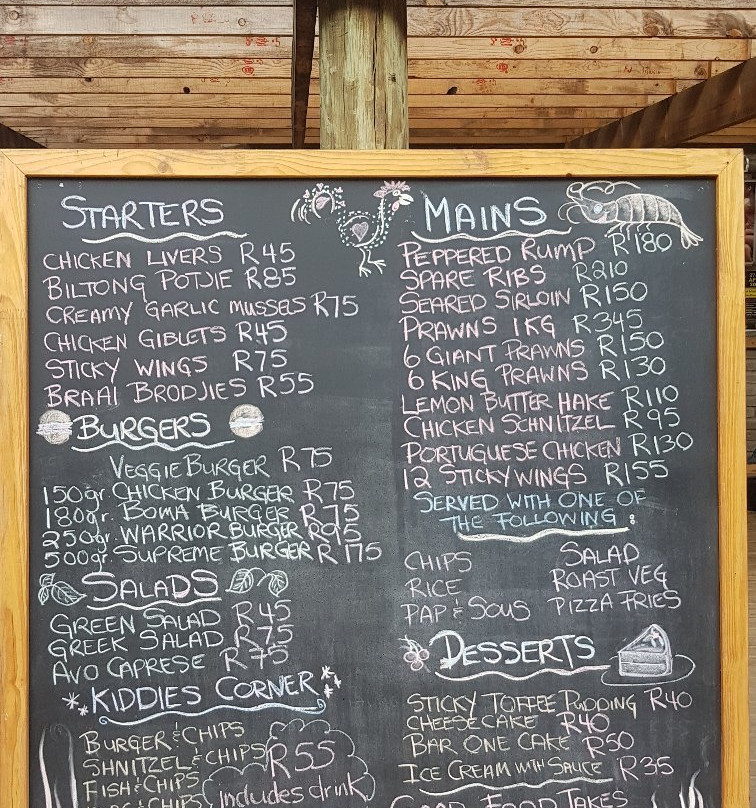 STARTERS
CHICKEN LIVERS R45
BILTONG POTJIE R85
CREAMY GARLIC MUSSELS R75
CHICKEN GIBLETS R45
STICKY WINGS R75
BRAAI BRODJIES R55
BURGERS
VEGGIE BURGER R75
150gr. CHICKEN BURGER R75
180gr. BOMA BURGER R75
250gr. WARRIOR BURGER R95
500gr. SUPREME BURGER R175
SALADS
GREEN SALAD R45
GREEK SALAD R75
AVO CAPRESE R75
KIDDIES CORNER
BURGER & CHIPS
SHNITZEL & CHIPS
FISH & CHIPS
& CHIPS
R55
includes drink
MAINS
PEPPERED RUMP R180
SPARE RIBS R210
SEARED SIRLOIN R150
PRAWNS 1KG R345
6 GIANT PRAWNS R150
6 KING PRAWNS R130
LEMON BUTTER HAKE R110
CHICKEN SCHNITZEL R95
PORTUGUESE CHICKEN R130
12 STICKY WINGS R155
SERVED WITH ONE OF
THE FOLLOWING:
CHIPS SALAD
RICE ROAST VEG
PAP & SOUS PIZZA FRIES
DESSERTS
STICKY TOFFEE PUDDING R40
CHEESECAKE R40
BAR ONE CAKE R50
ICE CREAM WITH SAUCE R35
GOOD FOOD TAKES